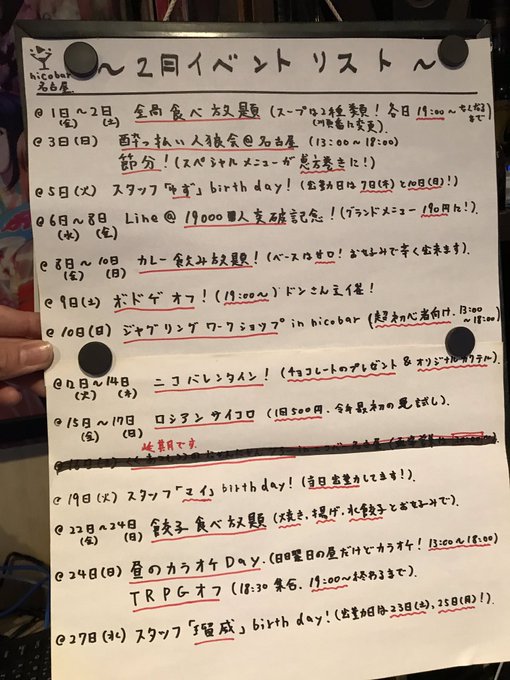 nicobar
名古屋
～2月イベントリスト～
@1日～2日 全鍋食べ放題(スープは2種類!各日19:00～なくなるまで)
(金) (土)
@3日(日) 酔っ払い人狼会@名古屋 (13:00～18:00)
節分!(スペシャルメニューが恵方巻きに!)
@5日(火) スタッフ「ゆず」birthday!(出勤日は7日(木)と10日(日)!)
@6日～8日 Line@19000人突破記念!(グランドメニュー190円に!)
(水) (金)
@8日～10日 カレー飲み放題!(ベースは甘口!お好みで辛く出来ます)
(金) (日)
@9日(土) ボドゲオフ!(19:00～)ドンさん主催!
@10日(日) ジャグリングワークショップ in nicobar (超初心者向け、13:00～18:00)
@12日～14日 ニコバレンタイン!(チョコレートのプレゼント&オリジナルカクテル)
(火) (木)
@15日～17日 ロシアンサイコロ(1回500円、今年最初の運試し)
(金) (日)
延期です
@19日(火) スタッフ「マイ」birthday!(当日出勤してます!)
@22日～24日 餃子食べ放題(焼き、揚げ、水餃子とお好みで)
(金) (日)
@24日(日) 昼のカラオケDay.(日曜日の昼だけどカラオケ!13:00～18:00)
TRPGオフ(18:30集合、19:00～終わるまで)
@27日(水) スタッフ「瑠威」birthday!(出勤日は23日(土)、25日(月)!)